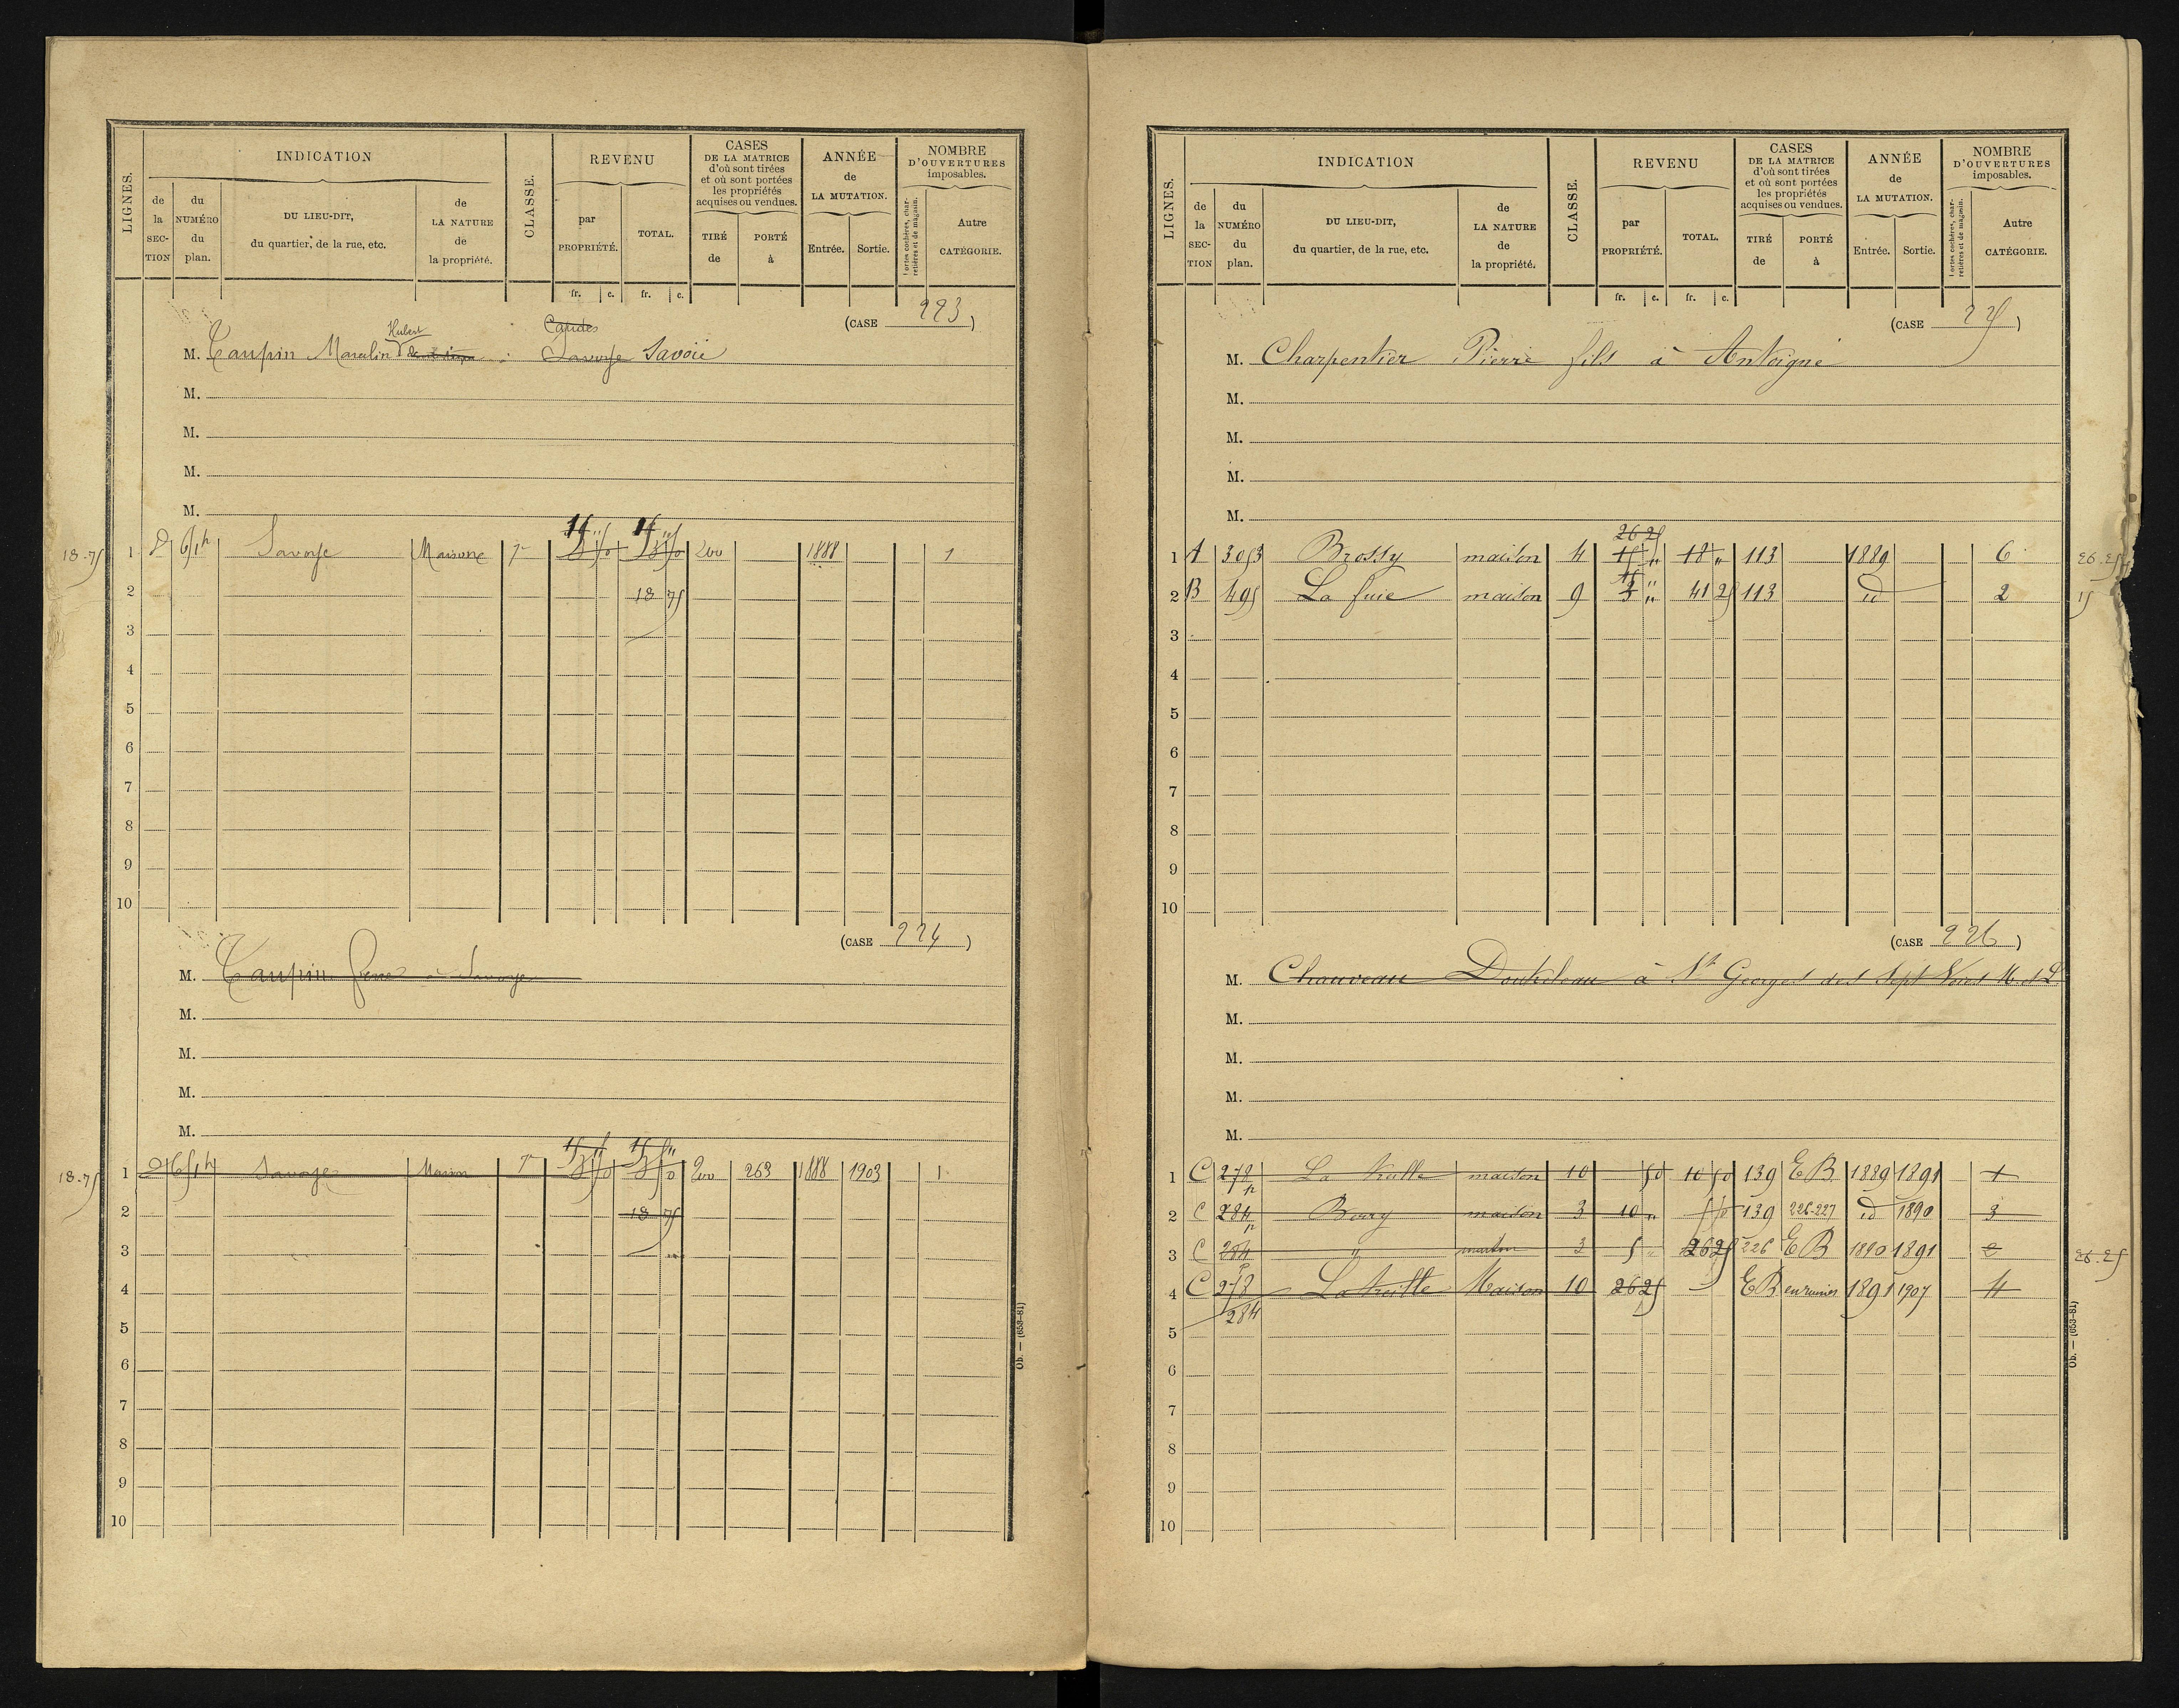 LIGNES. INDICATION CLASSE. REVENU CASES DE LA MATRICE d'où sont tirées et où sont portées les propriétés acquises ou vendues. ANNÉE de LA MUTATION. NOMBRE D'OUVERTURES imposables.
de la SECTION du NUMÉRO du plan. DU LIEU-DIT, du quartier, de la rue, etc. de LA NATURE de la propriété. par PROPRIÉTÉ. TOTAL. TIRÉ de PORTÉ à Entrée. Sortie. Portes cochères, charretières et de magasin. Autre CATÉGORIE.
fr. c. fr. c.
(CASE 223)
Hubert Candes
M. Taupin Marulin Savoye Savoié
M.
M.
M.
M.
18.75 1 D 651p Savoye Maison 7 200 1888 1
2 18 75
3
4
5
6
7
8
9
10
(CASE 224)
M. Taupin René à Savoye
M.
M.
M.
M.
18.75 1 D 651p Savoye Maison 7 200 263 1888 1903 1
2 18 75
3
4
5
6
7
8
9
10
Ob. — (653-81)
LIGNES. INDICATION CLASSE. REVENU CASES DE LA MATRICE d'où sont tirées et où sont portées les propriétés acquises ou vendues. ANNÉE de LA MUTATION. NOMBRE D'OUVERTURES imposables.
de la SECTION du NUMÉRO du plan. DU LIEU-DIT, du quartier, de la rue, etc. de LA NATURE de la propriété. par PROPRIÉTÉ. TOTAL. TIRÉ de PORTÉ à Entrée. Sortie. Portes cochères, charretières et de magasin. Autre CATÉGORIE.
fr. c. fr. c.
(CASE 225)
M. Charpentier Pierre fils à Antoigné
M.
M.
M.
M.
26 25
1 A 3053 Brossy maison 4 15 " 18 " 113 1889 6 26.25
15 "
2 B 495 La fuie maison 9 3 " 41 25 113 id 2 15
3
4
5
6
7
8
9
10
(CASE 226)
M. Chauveau à St Georges des Sept Voies M. et L.
M.
M.
M.
M.
1 C 278p La maison 10 50 10 50 139 EB 1889 1891 1
2 C 284 " Boury maison 3 10 " 139 226-227 id 1890 3
3 C 284p " maison 3 5 " 26 25 226 EB 1890 1891 2 26.25
4 C 278 La treille Maison 10 26 25 EB en ruines 1891 1907 4
284
5
6
7
8
9
10
Ob. — (653-81)